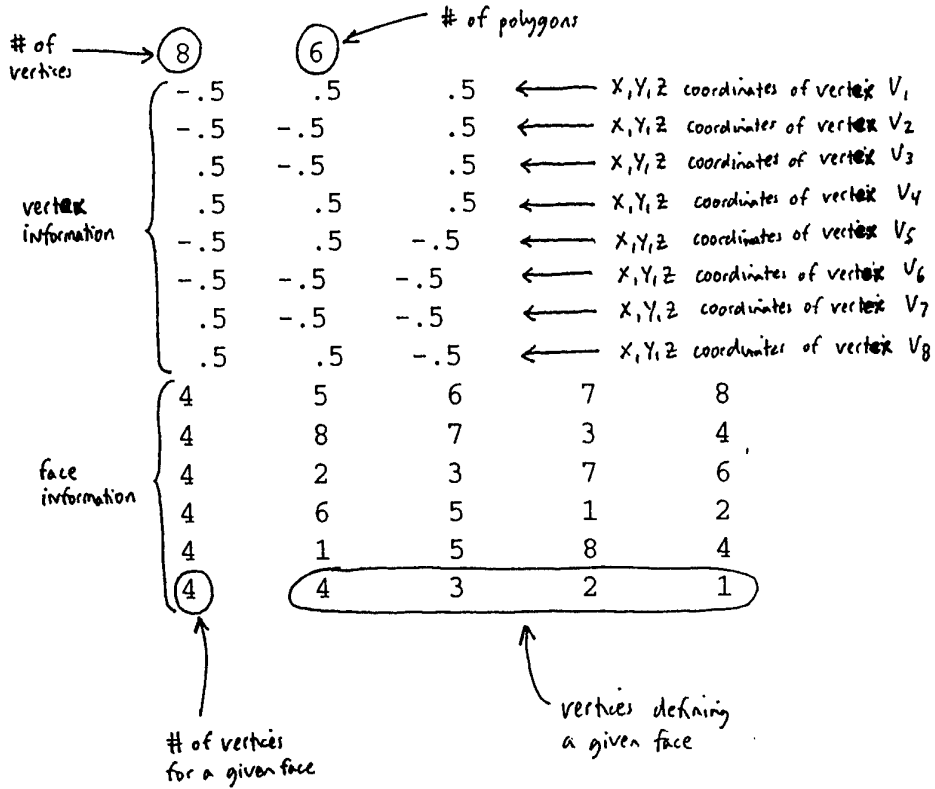 # of polygons
# of vertices
8 6
-.5 .5 .5 X,Y,Z coordinates of vertex V1
-.5 -.5 .5 X,Y,Z coordinates of vertex V2
.5 -.5 .5 X,Y,Z coordinates of vertex V3
.5 .5 .5 X,Y,Z coordinates of vertex V4
-.5 .5 -.5 X,Y,Z coordinates of vertex V5
-.5 -.5 -.5 X,Y,Z coordinates of vertex V6
.5 -.5 -.5 X,Y,Z coordinates of vertex V7
.5 .5 -.5 X,Y,Z coordinates of vertex V8
vertex
information
4 5 6 7 8
4 8 7 3 4
4 2 3 7 6
4 6 5 1 2
4 1 5 8 4
4 4 3 2 1
face
information
# of vertices
for a given face
vertices defining
a given face